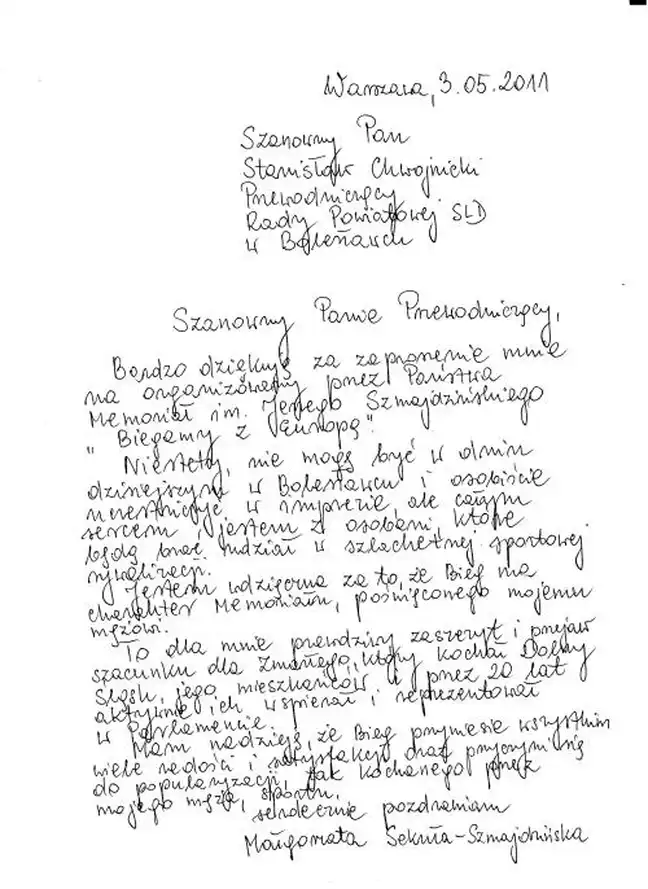 Warszawa, 3.05.2011
Szanowny Pan
Stanisław Chwojnicki
Przewodniczący
Rady Powiatowej SLD
w Bolesławcu
Szanowny Panie Przewodniczący,
Bardzo dziękuję za zaproszenie mnie
na organizowany przez Państwa
Memoriał im. Jerzego Szmajdzińskiego
"Biegamy z Europą".
Niestety, nie mogę być w dniu
dzisiejszym w Bolesławcu i osobiście
uczestniczyć w imprezie, ale całym
sercem jestem z osobami, które
będą brać udział w szlachetnej sportowej
rywalizacji.
Jestem wdzięczna za to, że Bieg ma
charakter Memoriału, poświęconego mojemu
mężowi.
To dla mnie prawdziwy zaszczyt i przejaw
szacunku dla Zmarłego, który kochał Dolny
Śląsk, jego mieszkańców i przez 20 lat
aktywnie ich wspierał i reprezentował
w Parlamencie.
Mam nadzieję, że Bieg przyniesie wszystkim
wiele radości i satysfakcji oraz przyczyni się
do popularyzacji, tak kochanego przez
mojego męża, sportu.
serdecznie pozdrawiam
Małgorzata Sekuła-Szmajdzińska